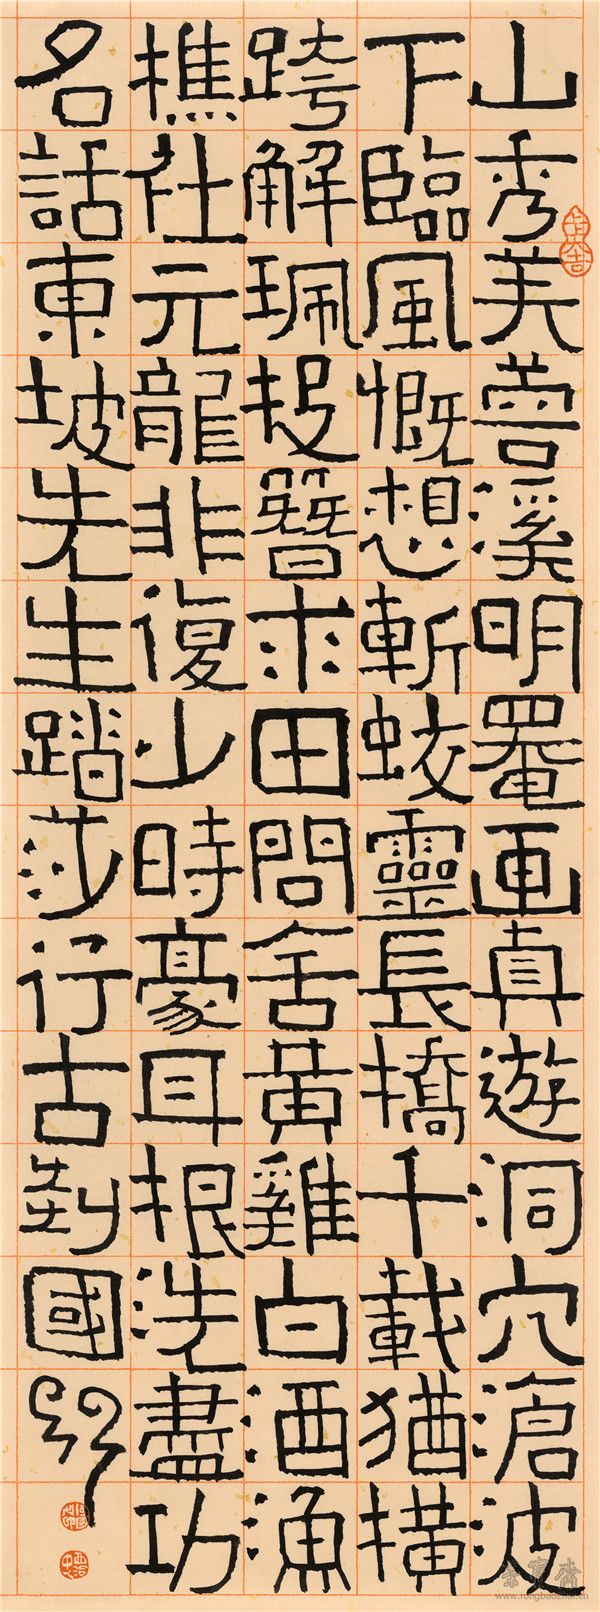 山秀芙蓉溪明罨画真遊洞穴滄波
下臨風慨想斬蛟靈長橋千載猶橫
跨解珮投簪求田問舍黃雞白酒漁
樵社元龍非復少時豪耳根洗盡功
名話東坡先生踏莎行古封國
榮寶齋
www.rongbaozhai.cn